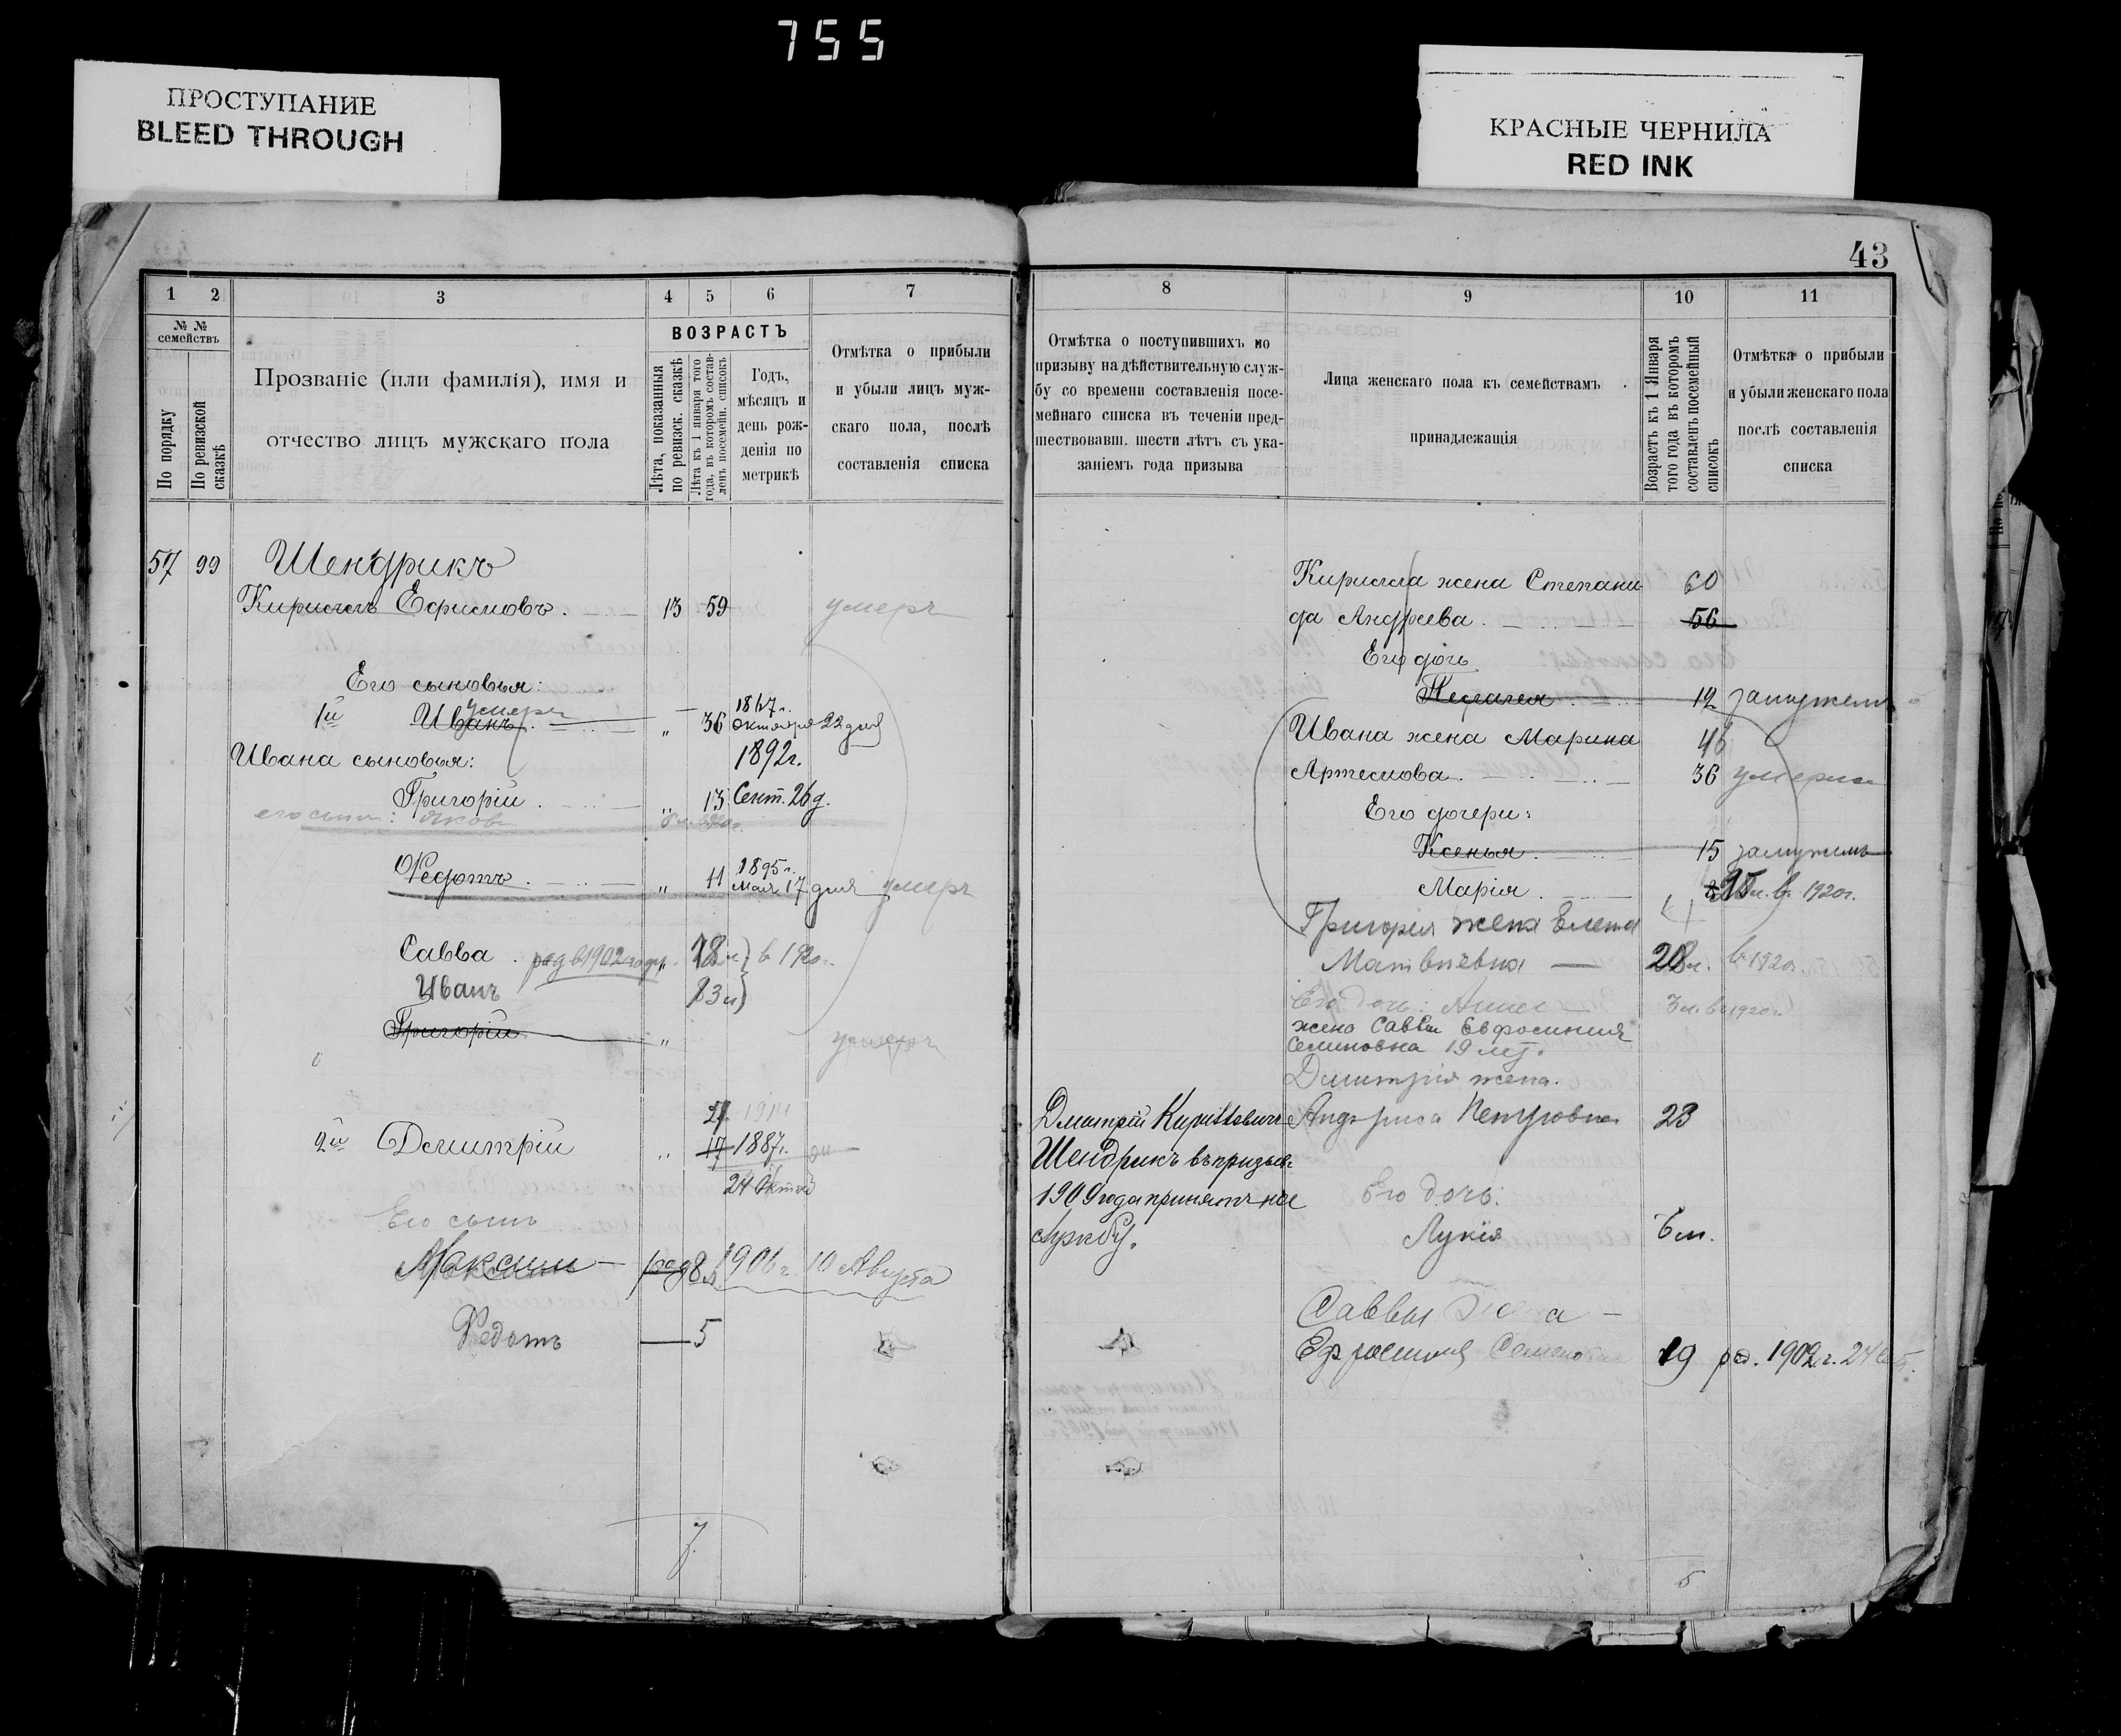 755
ПРОСТУПАНИЕ
BLEED THROUGH
КРАСНЫЕ ЧЕРНИЛА
RED INK
43
1 2 3 4 5 6 7
№ № семействъ
По порядку
По ревизской сказкѣ
Прозваніе (или фамилія), имя и
отчество лицъ мужскаго пола
ВОЗРАСТЪ
Лѣта, показанныя
по ревизск. сказкѣ
Лѣта къ 1 января того
года, въ которомъ состав-
ленъ посемейн. списокъ
Годъ,
мѣсяцъ и
день рож-
денія по
метрикѣ
Отмѣтка о прибыли
и убыли лицъ муж-
скаго пола, послѣ
составленія списка
57 99 Шендрикъ
Кириллъ Ефимовъ. 13 59 умеръ
Его сыновья:
умеръ 1867г.
1й Иванъ. „ 36 октября 22 дня
Ивана сыновья: 1892г.
Григорій. „ 13 Сент. 26 д.
его сынъ: Яковъ
1895г.
Ѳедотъ. „ 11 Мая 17 дня умеръ
Савва. род в 1902 году. „ 18 л} в 1920г.
Иванъ 13 л}
Григорій „ умеръ
27 1914
2й Димитрій „ 17 1887г.
24 Октяб
Его сынъ
Максим — род 8 л. 1906 г. 10 Августа
Федотъ — 5
7
8 9 10 11
Отмѣтка о поступившихъ по
призыву на дѣйствительную служ-
бу со времени составленія посе-
мейнаго списка въ теченіи пред-
шествовавш. шести лѣтъ съ ука-
заніемъ года призыва
Лица женскаго пола къ семействамъ
принадлежащія
Возрастъ къ 1 Января
того года въ которомъ
составленъ посемейный
списокъ
Отмѣтка о прибыли
и убыли женскаго пола
послѣ составленія
списка
Кирилла жена Степани- 60
да Андреева. 56
Его дочь
Пелагея 12 замужем
Ивана жена Марина 46
Артемова. 36 умерла
Его дочери:
Ксенья. 15 замужемъ
Марія. 15 л. в. 1920г.
Григорія жена Елена
Матвѣевна — 28 л. в 1920г.
Его дочь: 3 л. в 1920г.
жена Саввы Евфросиния
Семиновна 19 лет.
Димитрія жена.
Дмитрій Кирилловичъ Петровна 23
Шендрикъ въ призыв.
1909 года принятъ на Его дочь:
службу. Лукія 6 л.
Саввы жена —
Ефросиния 19 ро. 1902 г. 24
5